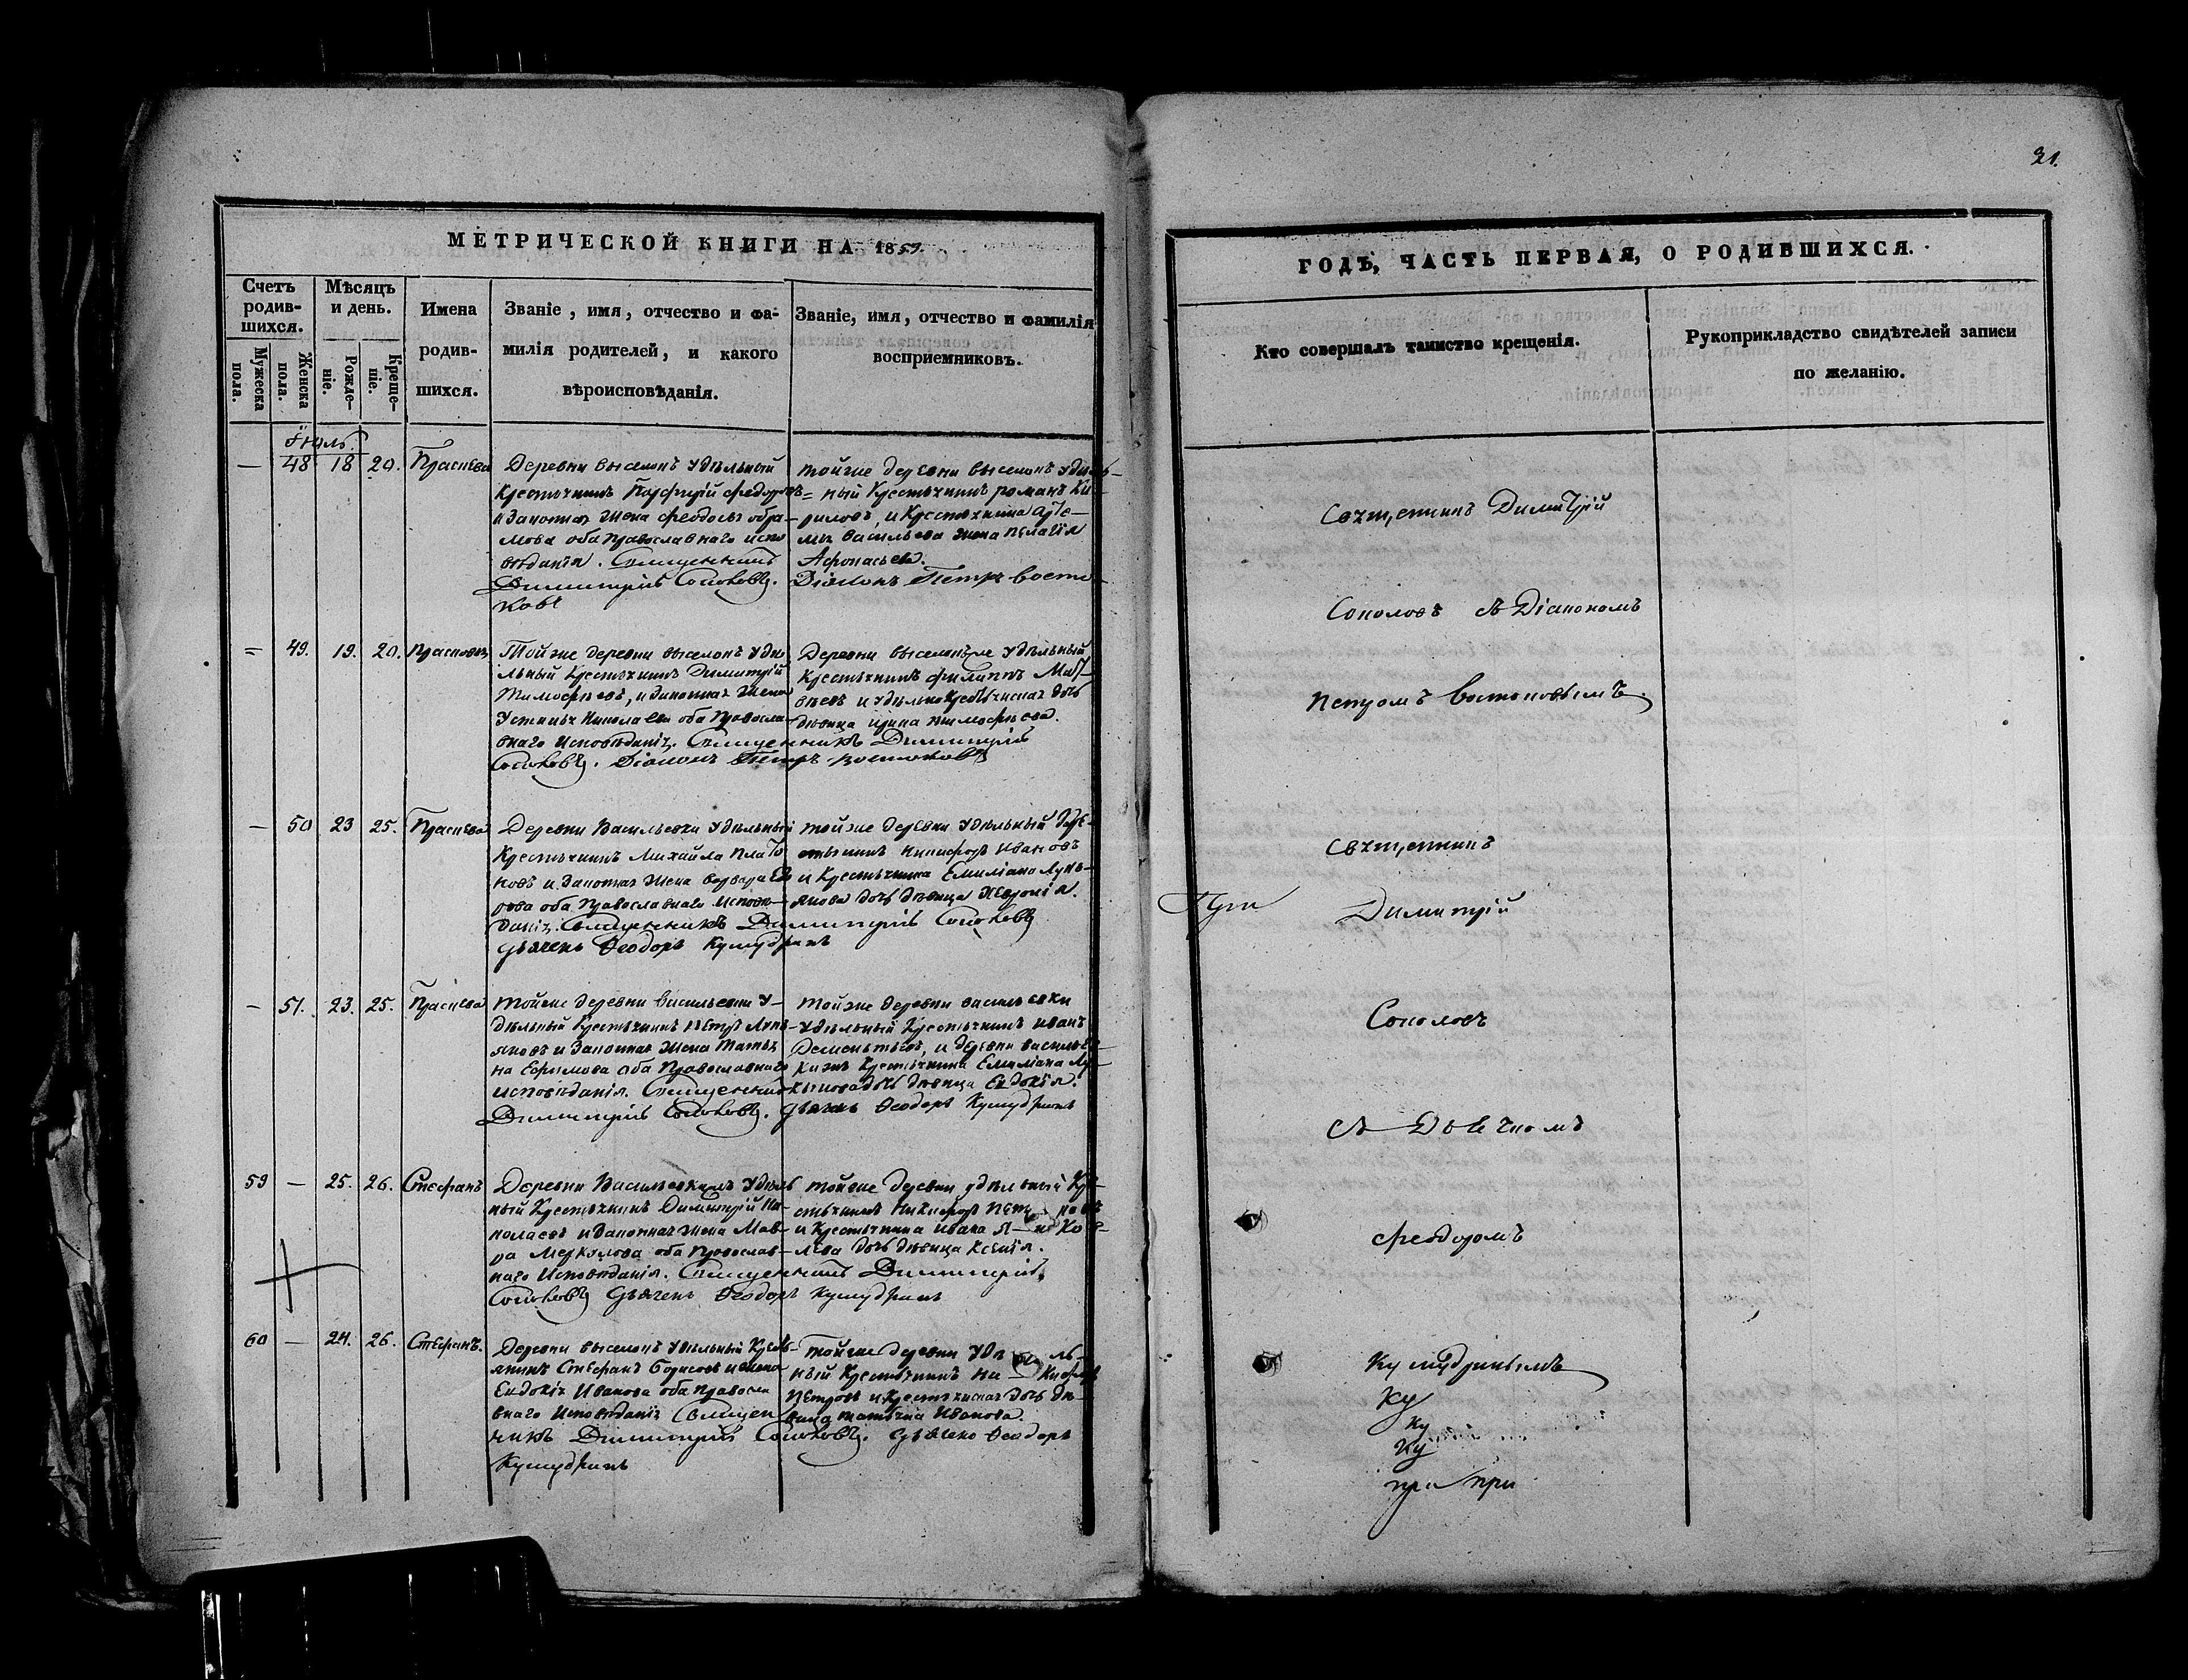 21.
МЕТРИЧЕСКОЙ КНИГИ НА 1859.
ГОДЪ, ЧАСТЬ ПЕРВАЯ, О РОДИВШИХСЯ.
Счетъ родив-шихся.
Мужеска пола.
Женска пола.
Мѣсяцъ и день.
Рожде-ніе.
Креще-ніе.
Имена родив-шихся.
Званіе, имя, отчество и фа-
милія родителей, и какого
вѣроисповѣданія.
Званіе, имя, отчество и фамилія
восприемниковъ.
Кто совершалъ таинство крещенія.
Рукоприкладство свидѣтелей записи
по желанію.
Іюль
— 48 18 20.
Деревни выселокъ удѣльный
Крестьянинъ Порфирій Федоровъ
и Законная Жена Феодосья Абра-
мова оба Православнаго испо
вѣданія. Священникъ
Димитрій Соколовъ.
тойже деревни выселокъ удѣль-
ный Крестьянинъ романъ Ки-
риловъ, и Крестьянина Арте-
мья васильева жена пелагія
Афонасьева.
Діаконъ Петръ Восто-
ковъ
= 49. 19. 20.
Тойже деревни выселокъ Удѣ
льный Крестьянинъ Димитрій
Тимофѣевъ, и законная Жена
Устинья Николаева оба Правосла
внаго Исповѣданія. Священникъ Димитрій
Соколовъ. Діаконъ Петръ Востоковъ
Деревни выселокъже Удѣльный
Крестьянинъ филиппъ Мат-
вѣевъ и удѣльнокрестьянская дочь
дѣвица ирина тимофѣева.
— 50 23 25.
Деревни Васильевки Удѣльный
Крестьянинъ Михайла Плато
новъ и Законная Жена варвара Ег
рова оба Православнаго исповѣ-
данія. Священникъ Димитрій Соколовъ
дьячекъ Ѳеодоръ Кумудринъ
тойже деревни Удѣльный Кре-
стьянинъ Никифоръ Ивановъ
и Крестьянина Емиліана Лукь-
янова дочь дѣвица Февронія.
— 51. 23. 25.
тойже деревни васильевки У-
дѣльный Крестьянинъ Петръ Лукь-
яновъ и Законная Жена Татья
на Ефимова оба Православнаго
исповѣданія. Священникъ
Димитрій Соколовъ. дьячекъ Ѳеодоръ Кумудринъ
тойже деревни васильевки
Удѣльный Крестьянинъ иванъ
Дементьевъ, и деревни василье-
кижъ Крестьянина Емиліана Лу-
кьянова дочь дѣвица Евдокія.
59 — 25. 26. Стефанъ
Деревни Васильевкижъ Удѣль
ный Крестьянинъ Димитрій Ни-
колаевъ и Законная Жена Мав-
ра Меркулова оба Православ-
наго Исповѣданія. Священникъ Димитрій
Соколовъ дьячекъ Ѳеодоръ Кумудринъ
тойже деревни удѣльный Кре-
стьянинъ Никифоръ Петровъ
и Крестьянина ивана Я- ко-
лева дочь дѣвица Ксенія.
60 — 24. 26. Стефанъ.
Деревни выселокъ Удѣльный Крест-
янинъ Стефанъ Борисовъ и жена
Евдокія Иванова оба правосла
внаго Исповѣданія Священ
никъ Димитрій Соколовъ. дьячекъ Ѳеодоръ
Кумудринъ
тойже деревни Удѣль-
ный Крестьянинъ Никифоръ
Петровъ и Крестьянская дочь дѣ-
вица татьяна Иванова.
Священникъ Димитрій
Соколовъ съ Діакономъ
Петромъ Востоковымъ.
Священникъ
Димитрій
Соколовъ
съ Дьячкомъ
Феодоромъ
Кумудринымъ
Ку
Ку
Ку
при при